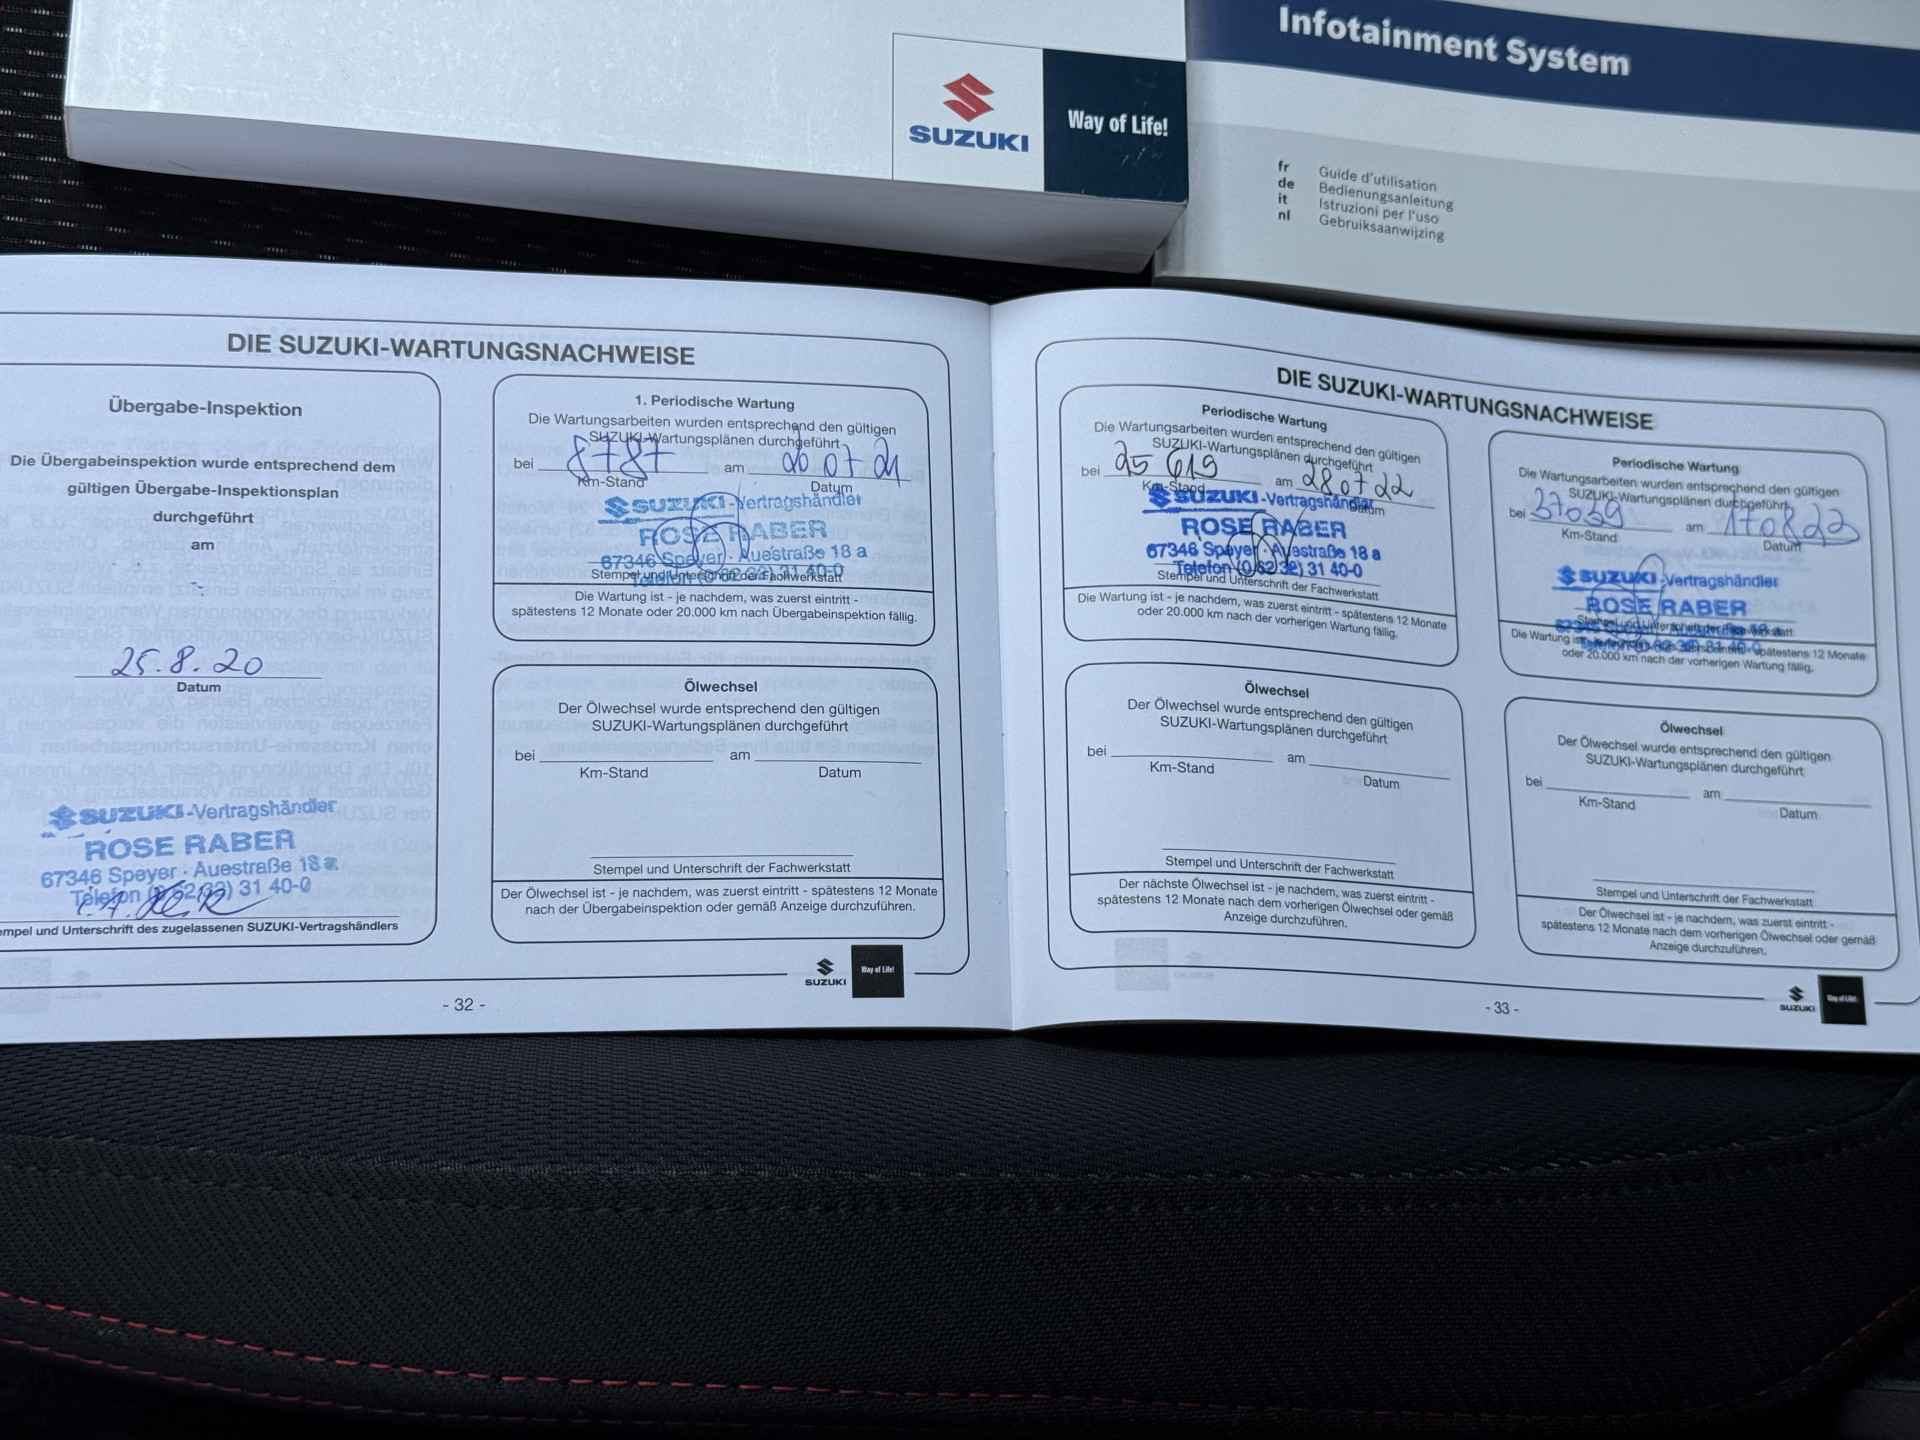 SUZUKI
Way of Life!
Infotainment System
fr Guide d'utilisation
de Bedienungsanleitung
it Istruzioni per l'uso
nl Gebruiksaanwijzing
DIE SUZUKI-WARTUNGSNACHWEISE
Übergabe-Inspektion
Die Übergabeinspektion wurde entsprechend dem
gültigen Übergabe-Inspektionsplan
durchgeführt
am
25.8.20
Datum
SUZUKI-Vertragshändler
ROSE RABER
67346 Speyer · Auestraße 18 a
Telefon (0 62 32) 31 40-0
empel und Unterschrift des zugelassenen SUZUKI-Vertragshändlers
1. Periodische Wartung
Die Wartungsarbeiten wurden entsprechend den gültigen
SUZUKI-Wartungsplänen durchgeführt
bei 8787 am 20 07 21
Km-Stand Datum
SUZUKI-Vertragshändler
ROSE RABER
67346 Speyer · Auestraße 18 a
Telefon (0 62 32) 31 40-0
Stempel und Unterschrift der Fachwerkstatt
Die Wartung ist - je nachdem, was zuerst eintritt -
spätestens 12 Monate oder 20.000 km nach Übergabeinspektion fällig.
Ölwechsel
Der Ölwechsel wurde entsprechend den gültigen
SUZUKI-Wartungsplänen durchgeführt
bei am
Km-Stand Datum
Stempel und Unterschrift der Fachwerkstatt
Der Ölwechsel ist - je nachdem, was zuerst eintritt - spätestens 12 Monate
nach der Übergabeinspektion oder gemäß Anzeige durchzuführen.
SUZUKI Way of Life!
- 32 -
DIE SUZUKI-WARTUNGSNACHWEISE
Periodische Wartung
Die Wartungsarbeiten wurden entsprechend den gültigen
SUZUKI-Wartungsplänen durchgeführt
bei 25 619 am 28 07 22
Km-Stand Datum
SUZUKI-Vertragshändler
ROSE RABER
67346 Speyer · Auestraße 18 a
Telefon (0 62 32) 31 40-0
Stempel und Unterschrift der Fachwerkstatt
Die Wartung ist - je nachdem, was zuerst eintritt - spätestens 12 Monate
oder 20.000 km nach der vorherigen Wartung fällig.
Ölwechsel
Der Ölwechsel wurde entsprechend den gültigen
SUZUKI-Wartungsplänen durchgeführt
bei am
Km-Stand Datum
Stempel und Unterschrift der Fachwerkstatt
Der nächste Ölwechsel ist - je nachdem, was zuerst eintritt -
spätestens 12 Monate nach dem vorherigen Ölwechsel oder gemäß
Anzeige durchzuführen.
Periodische Wartung
Die Wartungsarbeiten wurden entsprechend den gültigen
SUZUKI-Wartungsplänen durchgeführt
bei 37039 am
Km-Stand Datum
SUZUKI-Vertragshändler
ROSE RABER
67346 Speyer · Auestraße 18 a
Stempel und Unterschrift der Fachwerkstatt
Die Wartung ist - je nachdem, was zuerst eintritt - spätestens 12 Monate
oder 20.000 km nach der vorherigen Wartung fällig.
Ölwechsel
Der Ölwechsel wurde entsprechend den gültigen
SUZUKI-Wartungsplänen durchgeführt
bei am
Km-Stand Datum
Stempel und Unterschrift der Fachwerkstatt
Der Ölwechsel ist - je nachdem, was zuerst eintritt -
spätestens 12 Monate nach dem vorherigen Ölwechsel oder gemäß
Anzeige durchzuführen.
SUZUKI Way of Life!
- 33 -